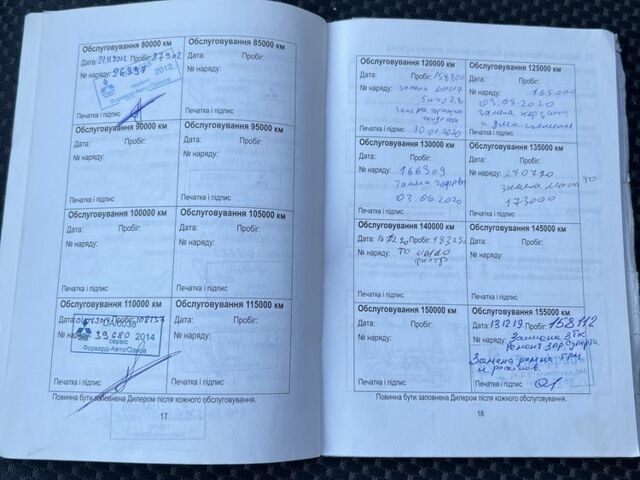 Обслуговування 80000 км
Дата: 21.11.2012 Пробіг: 87902
№ наряду: 26397
2012
Форвард-Авто/Одеса
Печатка і підпис
Обслуговування 85000 км
Дата: Пробіг:
№ наряду:
Печатка і підпис
Обслуговування 90000 км
Дата: Пробіг:
№ наряду:
Печатка і підпис
Обслуговування 95000 км
Дата: Пробіг:
№ наряду:
Печатка і підпис
Обслуговування 100000 км
Дата: Пробіг:
№ наряду:
Печатка і підпис
Обслуговування 105000 км
Дата: Пробіг:
№ наряду:
Печатка і підпис
Обслуговування 110000 км
Дата: Пробіг: 108737
UA/0038
№ наряду: 39680 2014
сервіс
Форвард-Авто/Одеса
Печатка і підпис
Обслуговування 115000 км
Дата: Пробіг:
№ наряду:
Печатка і підпис
Повинна бути заповнена Дилером після кожного обслуговування.
17
Обслуговування 120000 км
Дата: Пробіг: 158800
№ наряду: замена масла
Замена
Печатка і підпис 30.01.2020
Обслуговування 125000 км
Дата: Пробіг:
№ наряду: 165000
03.03.2020
замена корзины
и диск сцепления
Печатка і підпис
Обслуговування 130000 км
Дата: Пробіг:
№ наряду: 166909
Замена
03.06.2020
Печатка і підпис
Обслуговування 135000 км
Дата: Пробіг:
№ наряду:
замена масла
173000
Печатка і підпис
Обслуговування 140000 км
Дата: Пробіг: 183250
№ наряду: ТО масло
фильтр
Печатка і підпис
Обслуговування 145000 км
Дата: Пробіг:
№ наряду:
Печатка і підпис
Обслуговування 150000 км
Дата: Пробіг:
№ наряду:
Печатка і підпис
Обслуговування 155000 км
Дата: 13.12.19 Пробіг: 158112
№ наряду:
Ремонт
Замена ремня ГРМ
и роликов.
Печатка і підпис
Повинна бути заповнена Дилером після кожного обслуговування.
18